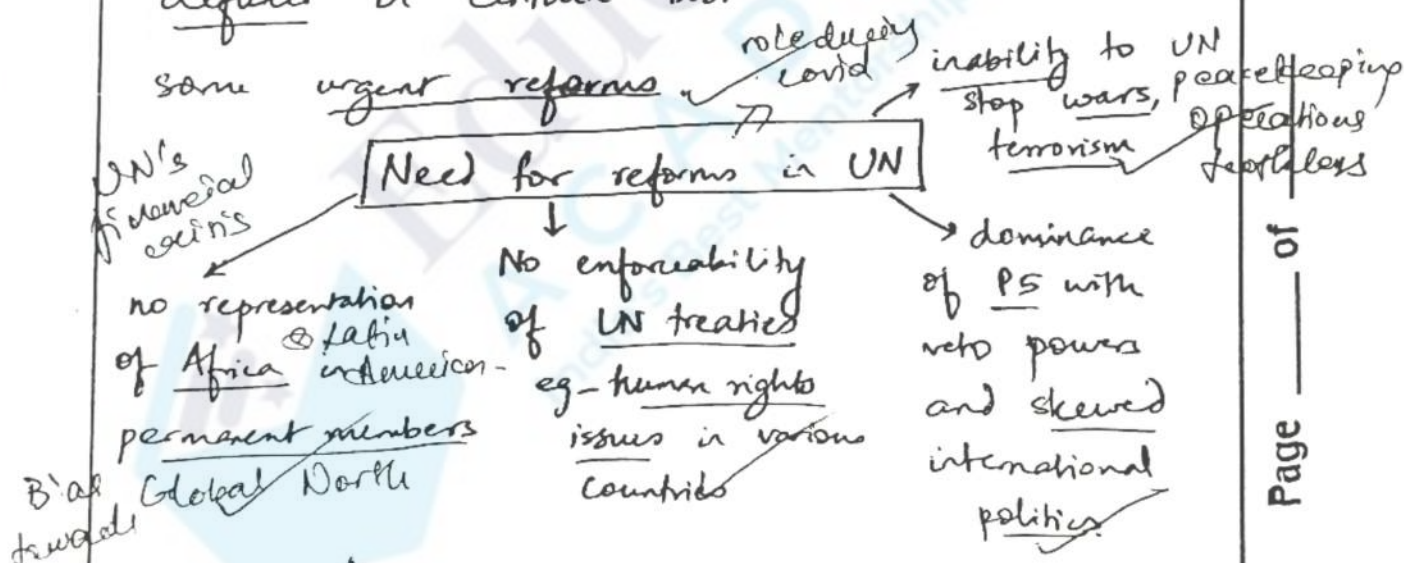 some urgent reforms.
role during
covid
inability to UN
stop wars, peacekeeping
terrorism operations
toothless
Need for reforms in UN
UN's
financial
crisis
no representation
of Africa & Latin
in America -
permanent members
Bias Global North
towards
No enforceability
of UN treaties
eg - human rights
issues in various
countries
dominance
of P5 with
veto powers
and skewed
international
politics.
Page ___ of ___